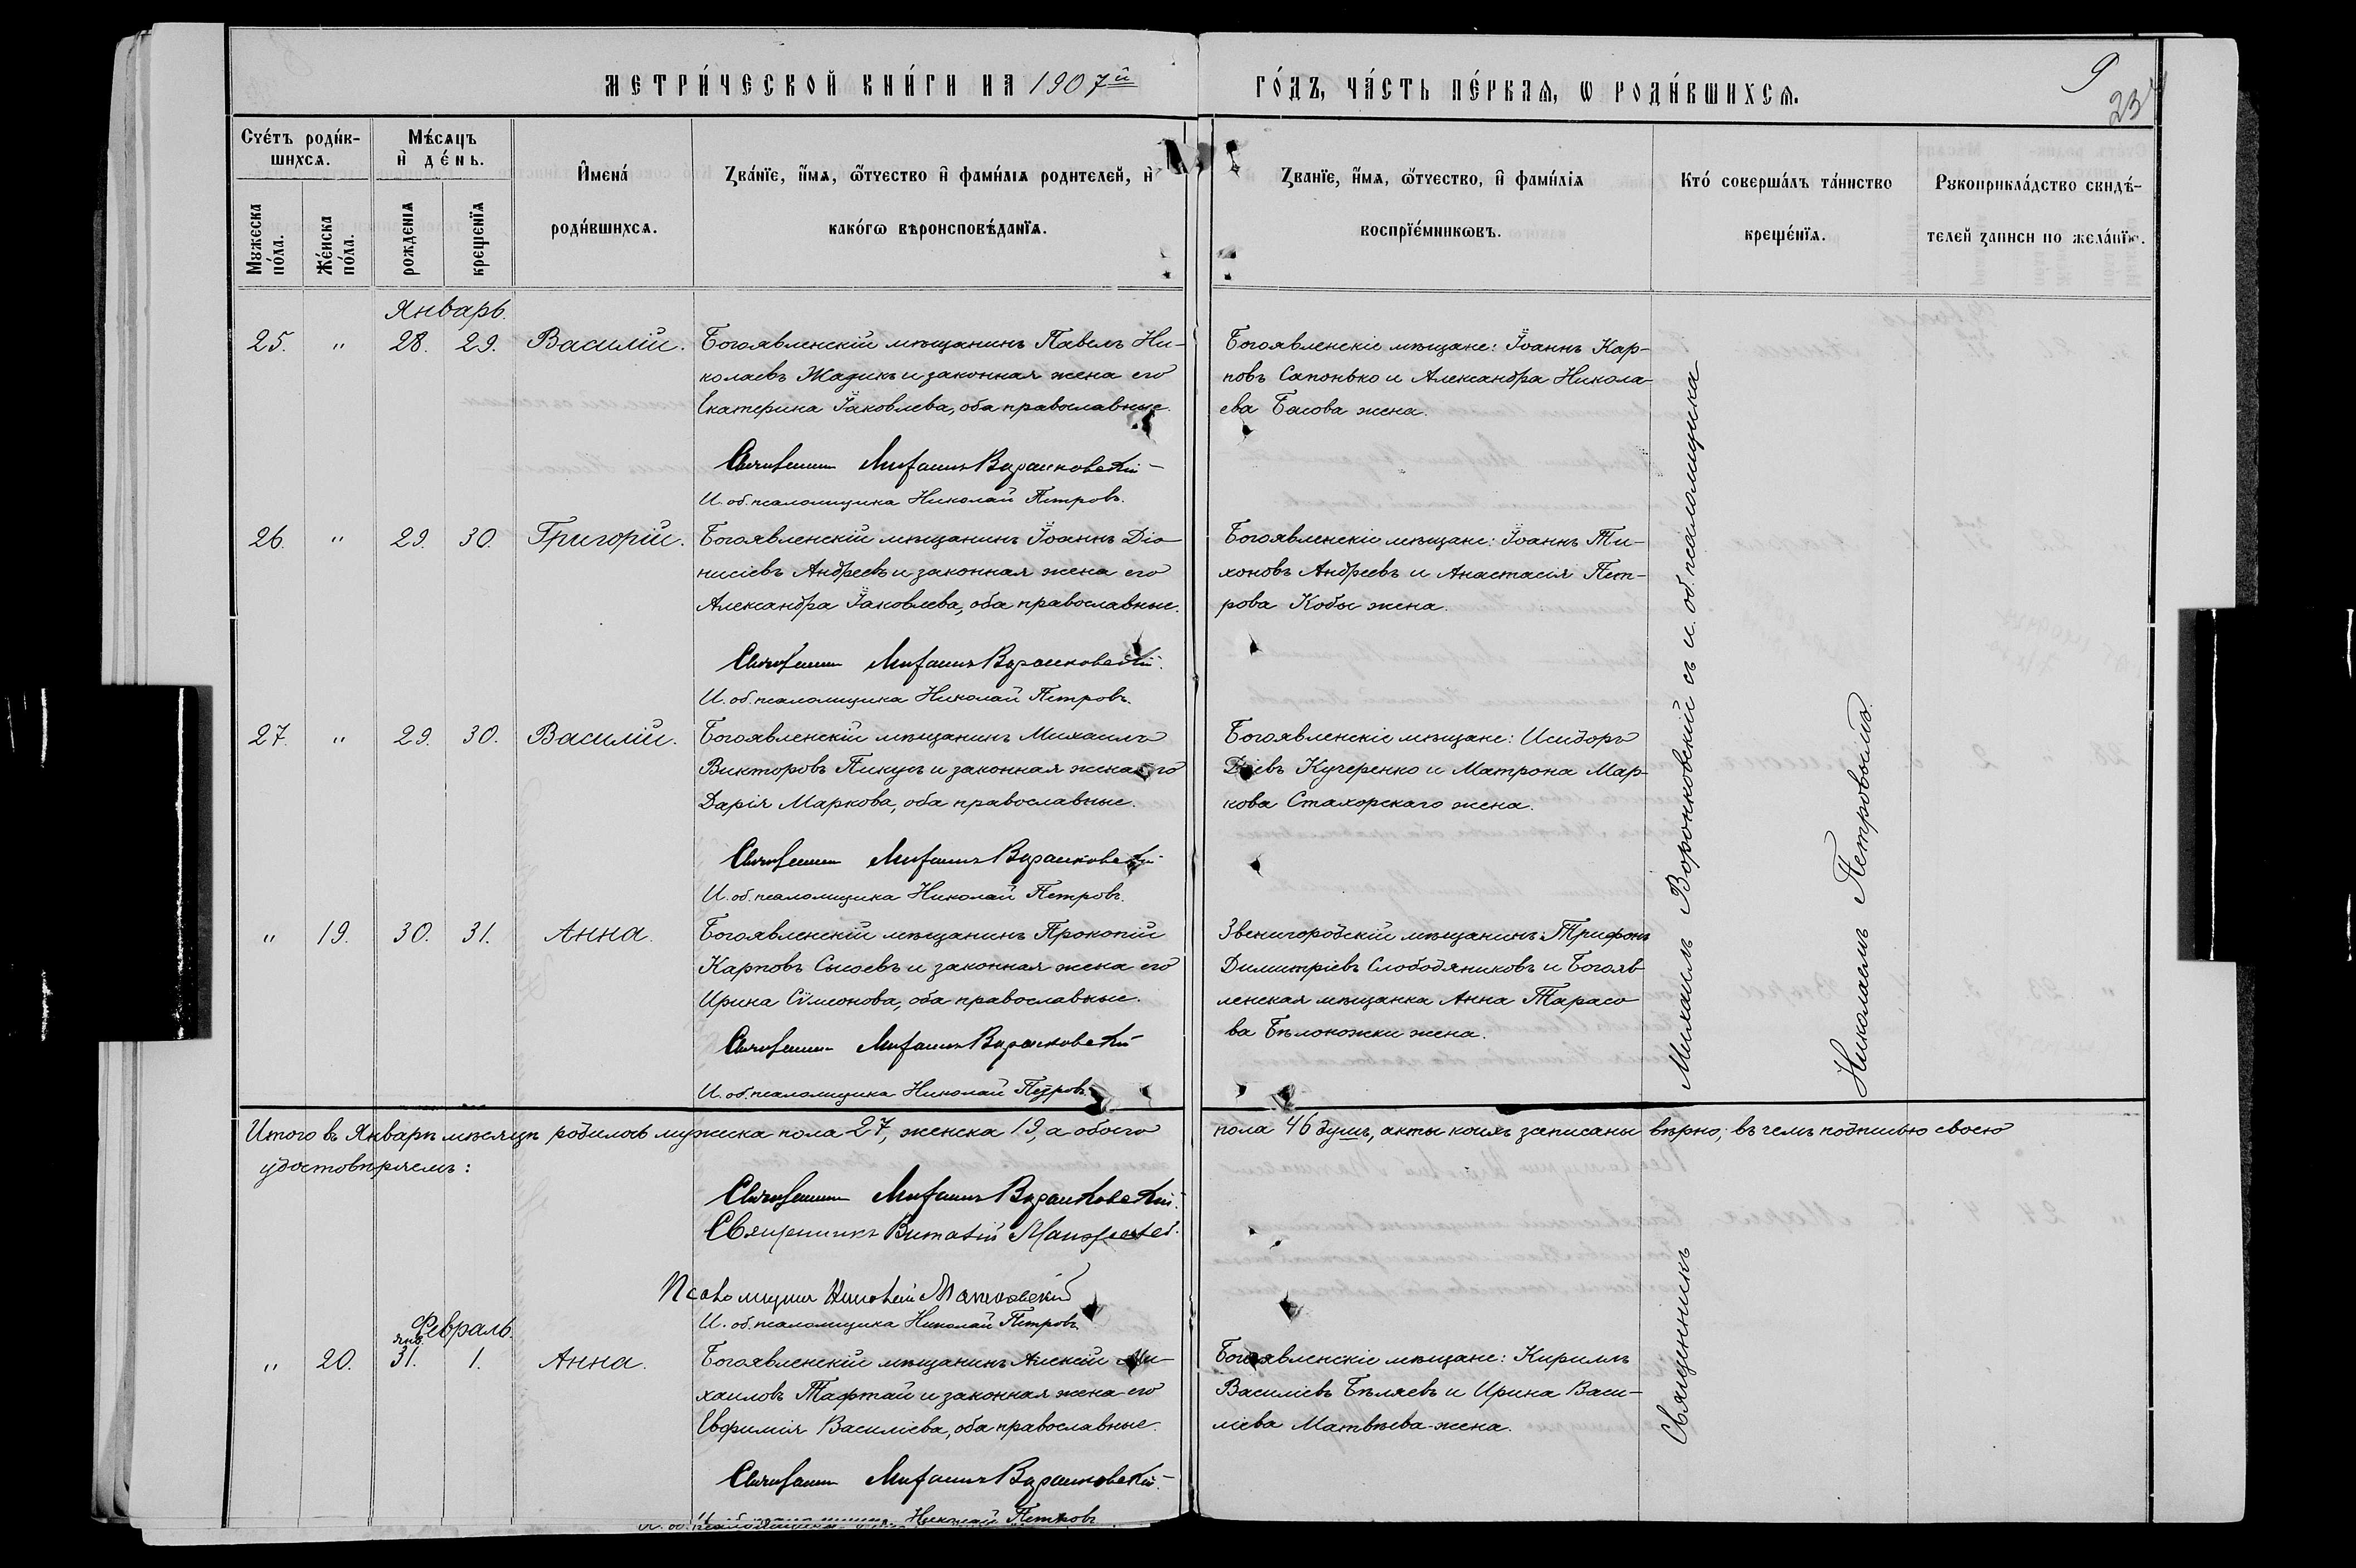 МЕТРИ́ЧЕСКОЙ КНИ́ГИ НА 1907й
ГО́ДЪ, ЧА́СТЬ ПЕ́РВАѦ, Ѡ РОДИ́ВШИХСѦ.
9
23
Сче́тъ роди́в-
шихсѧ.
Мꙋжеска
по́ла.
Же́нска
по́ла.
Мѣ́сѧцъ
и҆ де́нь.
рожденїѧ
крещенїѧ
И҆мена́
роди́вшихсѧ.
Зва́нїе, и҆́мѧ, ѻ҆́тчество и҆ фами́лїѧ родителей, и҆
како́гѡ вѣроисповѣ́данїѧ.
Званїе, и҆́мѧ, ѻ҆́тчество, и҆ фами́лїѧ
воспрїе́мникѡвъ.
Кто́ соверша́лъ та́инство
креще́нїѧ.
Рꙋкоприкла́дство свидѣ́-
телей записи по жела́нїю.
Январь.
25. " 28. 29. Василій.
Богоявленскій мѣщанинъ Павелъ Ни-
колаевъ Жадикъ и законная жена его
Екатерина Іаковлева, оба православные.
Священникъ Михаилъ Воронковскій
И. об. псаломщика Николай Петровъ.
Богоявленскіе мѣщане: Іоаннъ Кар-
повъ Сапонько и Александра Никола-
ева Басова жена.
26. " 29. 30. Григорій.
Богоявленскій мѣщанинъ Іоаннъ Діо-
нисіевъ Андреевъ и законная жена его
Александра Іаковлева, оба православные.
Священникъ Михаилъ Воронковскій.
И. об. псаломщика Николай Петровъ.
Богоявленскіе мѣщане: Іоаннъ Ти-
хоновъ Андреевъ и Анастасія Пет-
рова Кобы жена.
27. " 29. 30. Василій.
Богоявленскій мѣщанинъ Михаилъ
Викторовъ Пикусъ и законная жена его
Дарія Маркова, оба православные.
Священникъ Михаилъ Воронковскій
И. об. псаломщика Николай Петровъ.
Богоявленскіе мѣщане: Исидоръ
Кучеренко и Матрона Мар-
кова Стахорскаго жена.
" 19. 30. 31. Анна.
Богоявленскій мѣщанинъ Прокопій
Карповъ Сысоевъ и законная жена его
Ирина Сѵмеонова, оба православные.
Священникъ Михаилъ Воронковскій
И. об. псаломщика Николай Петровъ.
Звенигородскій мѣщанинъ: Трифонъ
Димитріевъ Слободяниковъ и Богояв-
ленская мѣщанка Анна Тарасо
ва Бѣлоножки жена.
Итого въ Январѣ мѣсяцѣ родилось мужска пола 27, женска 19, а обоего
пола 46 душъ, акты коихъ записаны вѣрно; въ чемъ подписью своею
удостовѣряемъ:
Священникъ Михаилъ Воронковскій.
Священникъ Виталій
Псаломщикъ
И. об. псаломщика Николай Петровъ.
Февраль.
янв.
" 20. 31. 1. Анна.
Богоявленскій мѣщанинъ Алексій Ми-
хаиловъ Тафтай и законная жена его
Евфимія Василіева, оба православные.
Священникъ Михаилъ Воронковскій.
И. об. псаломщика Николай Петровъ
Богоявленскіе мѣщане: Кириллъ
Василіевъ Бѣляевъ и Ирина Васи-
ліева Матвѣева жена.
Священникъ Михаилъ Воронковскій съ и. об. псаломщика
Николаемъ Петровымъ.